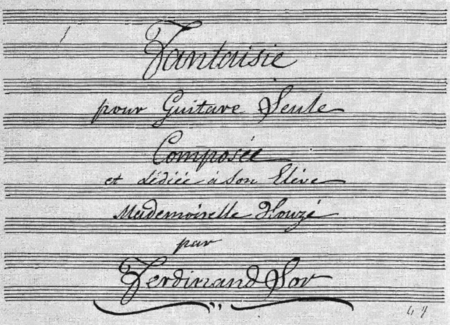 Fantaisie
pour Guitare Seule
Composée
et dédiée à Son Elève
Mademoiselle Houzé
par
Ferdinand Sor
49